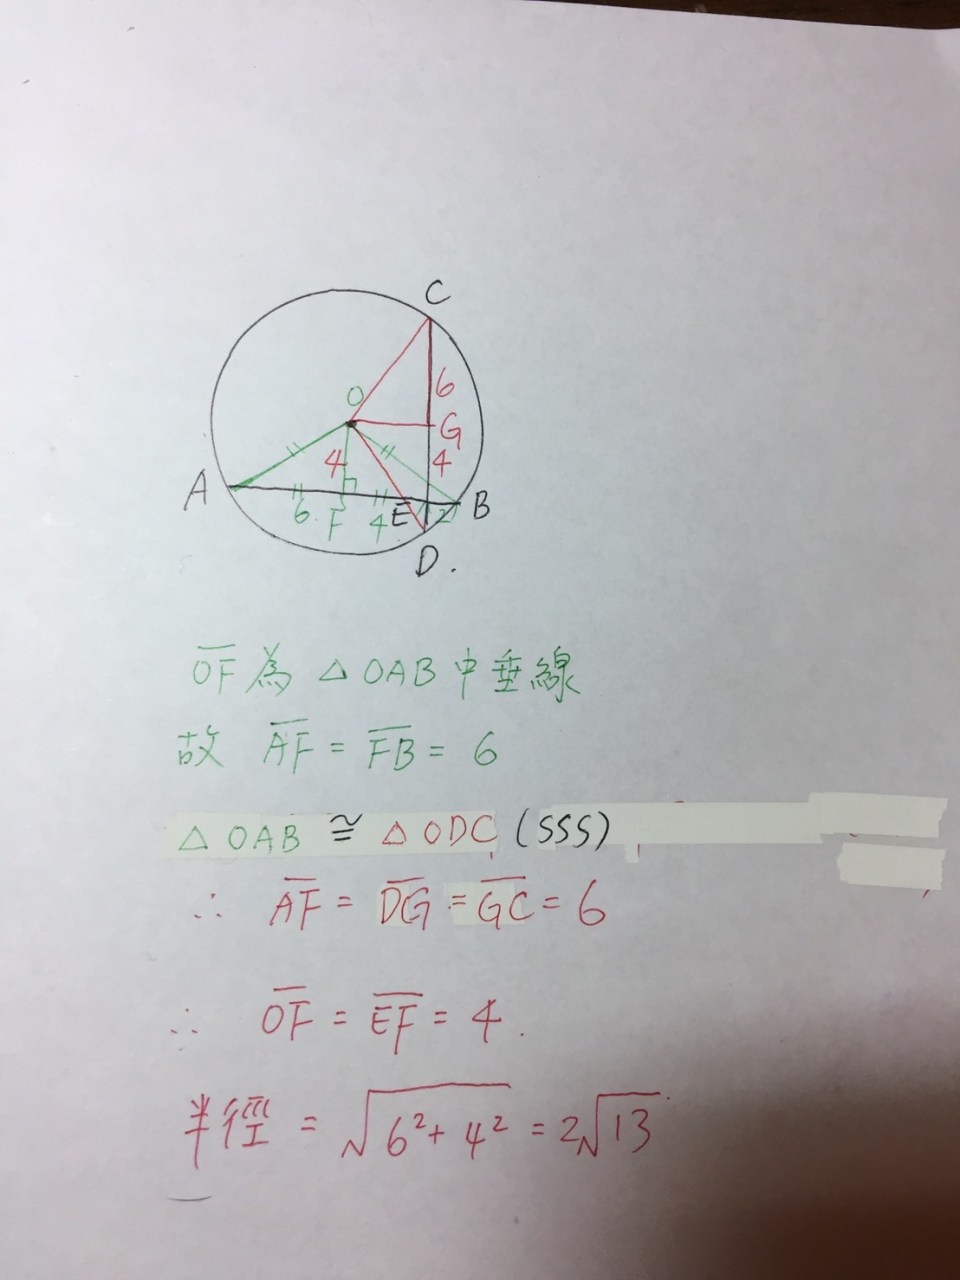 C
O
6
G
A
4
4
6
F
4
E
2
B
D.
OF為△OAB中垂線
故 AF = FB = 6
△OAB ≅ △ODC (SSS)
∴ AF = DG = GC = 6
∴ OF = EF = 4.
半徑 = √6²+4² = 2√13